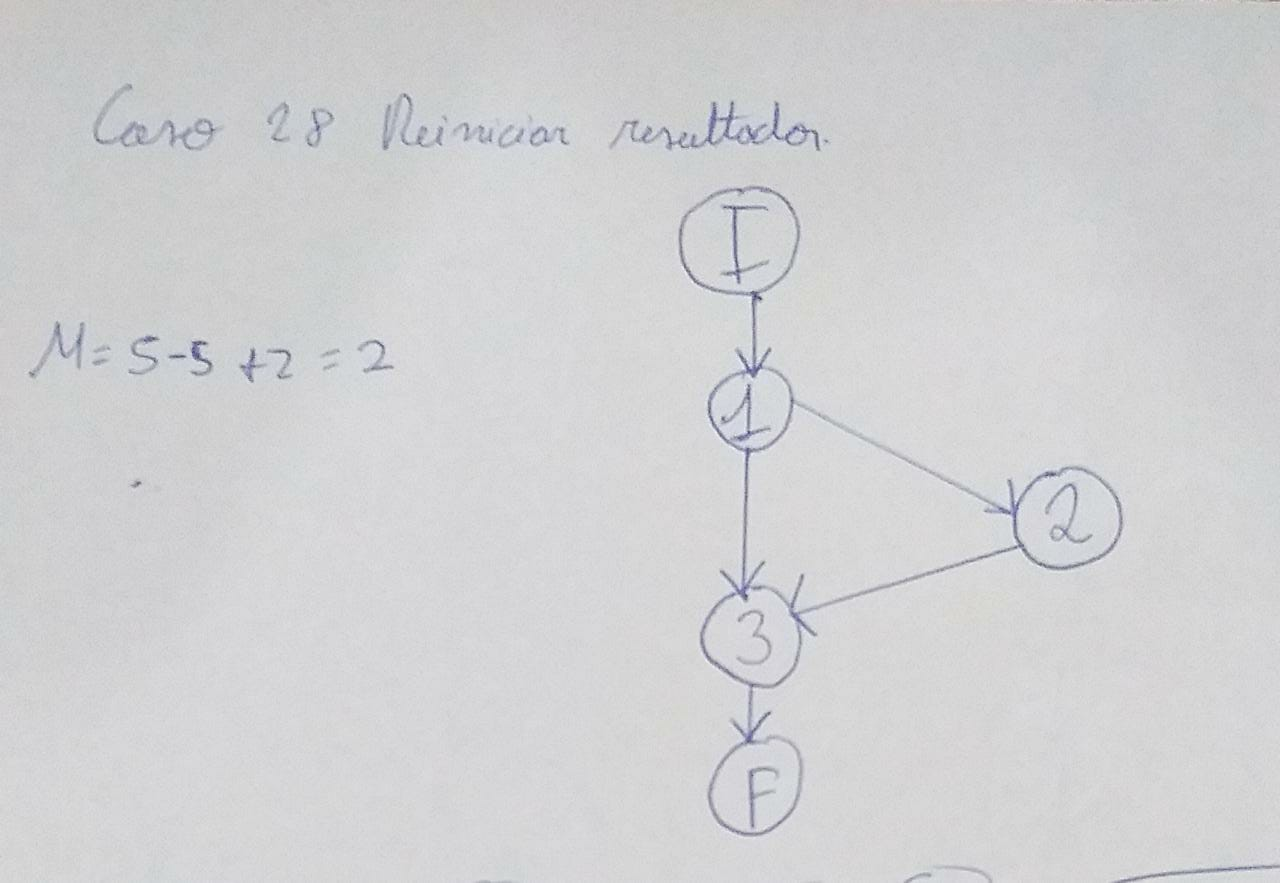 Caso 28 Reiniciar resultados.
I
M= 5-5 +2 = 2
1
2
3
F